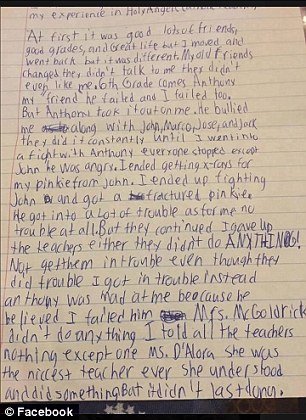 my experience in Holy Angels Catholic
At first it was good lots of friends,
good grades, and great life but I moved and
went back but it was different. My old friends
changed they didn't talk to me they didn't
even like me. 6th Grade comes Anthony
my friend he failed and I failed too.
But Anthony took it out on me. He bullied
me along with John, Marco, Jose, and Jack
they did it constantly until I went into
a fight with Anthony everyone stopped except
John he was angry. I ended getting x-rays for
my pinkie from John. I ended up fighting
John and got a fractured pinkie.
He got into a lot of trouble as for me no
trouble at all. But they continued I gave up
the teachers either they didn't do ANYTHING!
Not get them in trouble even though they
did trouble I got in trouble instead
anthony was mad at me because he
believed I failed him Mrs. McGoldrick
didn't do anything I told all the teachers
nothing except one Ms. D'Alora she was
the nicest teacher ever she understood
and did something But it didn't last long.
© Facebook